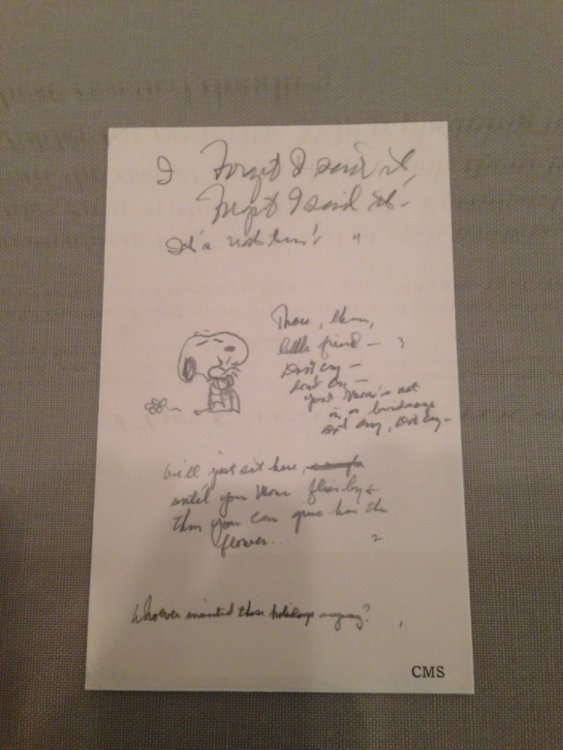 I Forget I said it,
Forget I said it!
It's not hers! 4
There, there,
little friend — 3
Don't cry —
Don't cry —
your Mom's not
in a birdcage
Don't cry, Don't cry —
We'll just sit here,
until your Mom flies by &
then you can give her the
flower.... 2
Whoever invented these holidays anyway? 1
CMS